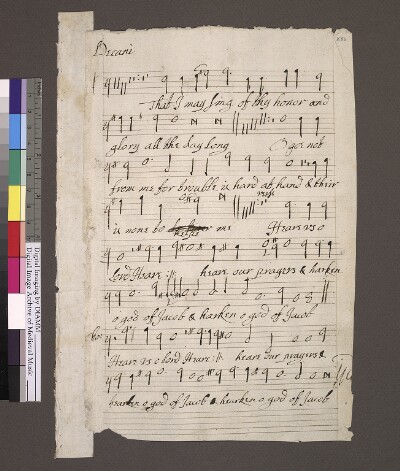 Decani
That I may sing of thy honor and
glory all the day long O go not
from me for trouble is hard at hand & ther
is none to me Heare us o
lord Heare :||: heare our prayers & harken
o god of Jacob & harken o god of Jacob
Heare us o lord Heare :||: heare our prayers &
harken o god of Jacob & hearken o god of Jacob
Digital Imaging by DIAMM
Digital Image Archive of Medieval Music